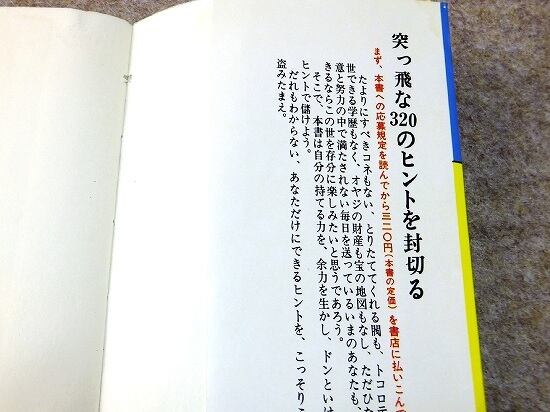 突っ飛な320のヒントを封切る
まず、本書への応募規定を読んでから三二〇円(本書の定価)を書店に払いこんで
たよりにすべきコネもない、とりたててくれる閥も、トコロテ
世できる学歴もなく、オヤジの財産も宝の地図もなし、ただひ
意と努力の中で満たされない毎日を送っているいまのあなたも、
きるならこの世を存分に楽しみたいと思うであろう。
そこで、本書は自分の持てる力を、余力を生かし、ドンといけ
ヒントで儲けよう。
だれもわからない、あなただけにできるヒントを、こっそりこ
盗みたまえ。